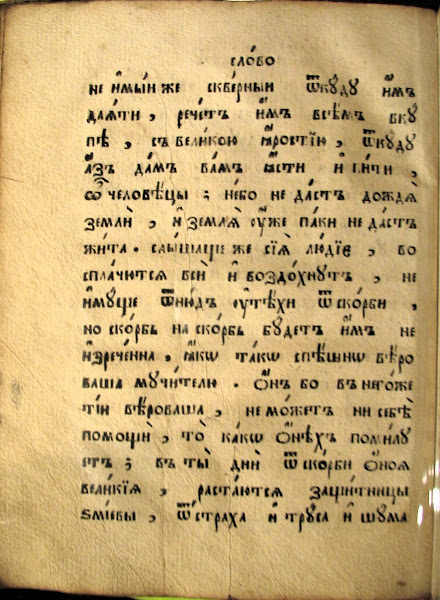 сло́во
не и҆мы́й же скве́рный ѿкꙋ́дꙋ и҆́мъ
да́ѧти , рече́тъ и҆̀мъ всѣ́мъ вкꙋ
пѣ , съ вели́кою ꙗ҆́ростїю , ѿкꙋ́дꙋ
а҆́зъ да́мъ ва́мъ ꙗ҆́сти и҆ пи́ти ,
ѽ человѣ́цы ; не́бо не да́стъ дождѧ̀
землѝ , и҆ землѧ̀ ᲂу҆́же па́ки не да́стъ
жи́та . слы́шаще же сїѧ̑ лю́дїе , во
спла́чютсѧ всѝ и҆ воздо́хнꙋтъ , не
и҆мꙋ́ще ѿню́дъ ᲂу҆тѣ́хи ѿ ско́рби ,
но ско́рбь на ско́рбь бꙋ́детъ и҆̀мъ не
и҆зрече́нна , ꙗ҆́кѡ та́кѡ спѣ́шнѡ вѣ́ро
ваша мꙋчи́телю . Ѻ҆́нъ бо въ него́же
ті́и вѣ́роваша , не мо́жетъ ни себѣ̀
помощѝ , то̀ ка́кѡ ѻ҆́нѣхъ поми́лꙋ
етъ ; въ ты́ѧ днѝ ѿ ско́рби ѻ҆́ноѧ
вели́кїѧ , раста́ютсѧ защи́тницы
ѕмі́евы , ѿ стра́ха и҆ трꙋ́са и҆ шꙋ́ма